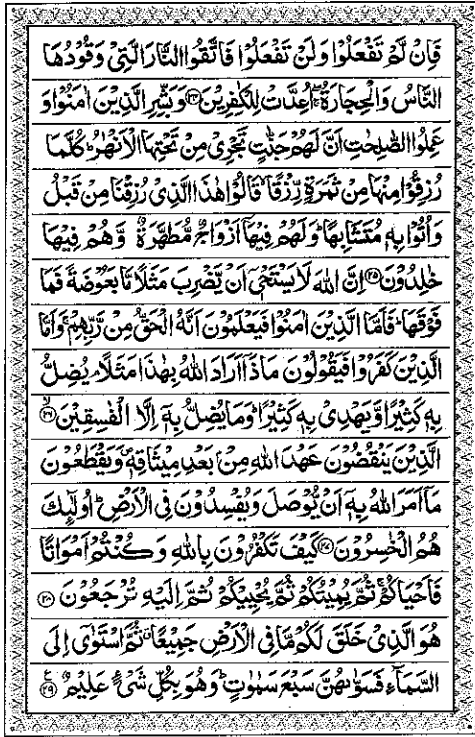 فَاِنْ لَّمْ تَفْعَلُوْا وَلَنْ تَفْعَلُوْا فَاتَّقُوا النَّارَ الَّتِیْ وَقُوْدُهَا
النَّاسُ وَالْحِجَارَةُ ۖۚ اُعِدَّتْ لِلْكٰفِرِیْنَ ﴿۲۴﴾ وَبَشِّرِ الَّذِیْنَ اٰمَنُوْا وَ
عَمِلُوا الصّٰلِحٰتِ اَنَّ لَهُمْ جَنّٰتٍ تَجْرِیْ مِنْ تَحْتِهَا الْاَنْهٰرُ ؕ كُلَّمَا
رُزِقُوْا مِنْهَا مِنْ ثَمَرَةٍ رِّزْقًا ۙ قَالُوْا هٰذَا الَّذِیْ رُزِقْنَا مِنْ قَبْلُ ۙ
وَاُتُوْا بِهٖ مُتَشَابِهًا ؕ وَلَهُمْ فِیْهَاۤ اَزْوَاجٌ مُّطَهَّرَةٌ ۙ وَّهُمْ فِیْهَا
خٰلِدُوْنَ ﴿۲۵﴾ اِنَّ اللّٰهَ لَا یَسْتَحْیٖۤ اَنْ یَّضْرِبَ مَثَلًا مَّا بَعُوْضَةً فَمَا
فَوْقَهَا ؕ فَاَمَّا الَّذِیْنَ اٰمَنُوْا فَیَعْلَمُوْنَ اَنَّهُ الْحَقُّ مِنْ رَّبِّهِمْ ۚ وَاَمَّا
الَّذِیْنَ كَفَرُوْا فَیَقُوْلُوْنَ مَاذَاۤ اَرَادَ اللّٰهُ بِهٰذَا مَثَلًا ۘ یُضِلُّ
بِهٖ كَثِیْرًا ۙ وَّیَهْدِیْ بِهٖ كَثِیْرًا ؕ وَمَا یُضِلُّ بِهٖۤ اِلَّا الْفٰسِقِیْنَ ﴿۲۶﴾ۙ
الَّذِیْنَ یَنْقُضُوْنَ عَهْدَ اللّٰهِ مِنْۢ بَعْدِ مِیْثَاقِهٖ ۪ وَیَقْطَعُوْنَ
مَاۤ اَمَرَ اللّٰهُ بِهٖۤ اَنْ یُّوْصَلَ وَیُفْسِدُوْنَ فِی الْاَرْضِ ؕ اُولٰٓئِكَ
هُمُ الْخٰسِرُوْنَ ﴿۲۷﴾ كَیْفَ تَكْفُرُوْنَ بِاللّٰهِ وَكُنْتُمْ اَمْوَاتًا
فَاَحْیَاكُمْ ۚ ثُمَّ یُمِیْتُكُمْ ثُمَّ یُحْیِیْكُمْ ثُمَّ اِلَیْهِ تُرْجَعُوْنَ ﴿۲۸﴾
هُوَ الَّذِیْ خَلَقَ لَكُمْ مَّا فِی الْاَرْضِ جَمِیْعًا ۗ ثُمَّ اسْتَوٰۤی اِلَی
السَّمَآءِ فَسَوّٰىهُنَّ سَبْعَ سَمٰوٰتٍ ؕ وَهُوَ بِكُلِّ شَیْءٍ عَلِیْمٌ ﴿۲۹﴾ ع